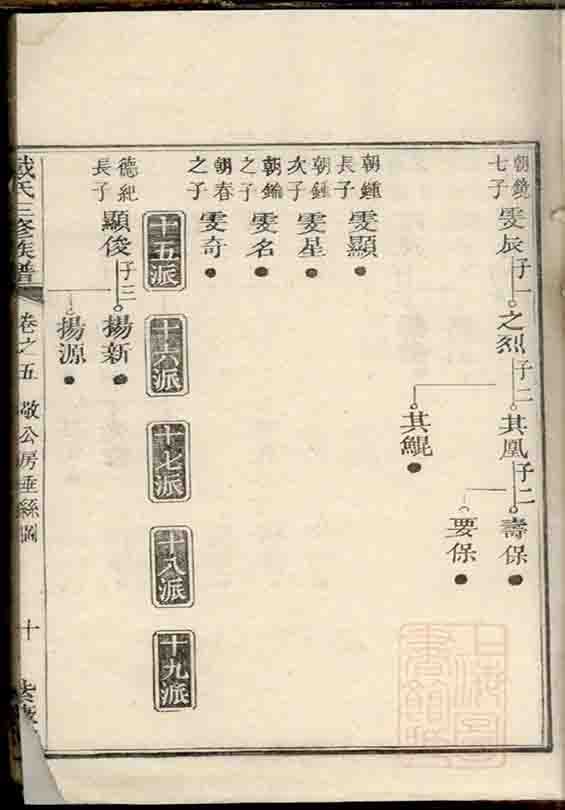 朝鏡七子
雯辰
子一
之烈
子二
其凰
子二
壽保
要保
其鯤
朝鍾長子
雯顯
朝鍾次子
雯星
朝錀之子
雯名
朝春之子
雯奇
十五派
十六派
十七派
十八派
十九派
德紀長子
顯俊
子三
揚新
揚源
戴氏三修族譜
卷之五
敬公房垂絲圖
十
上海圖書館藏